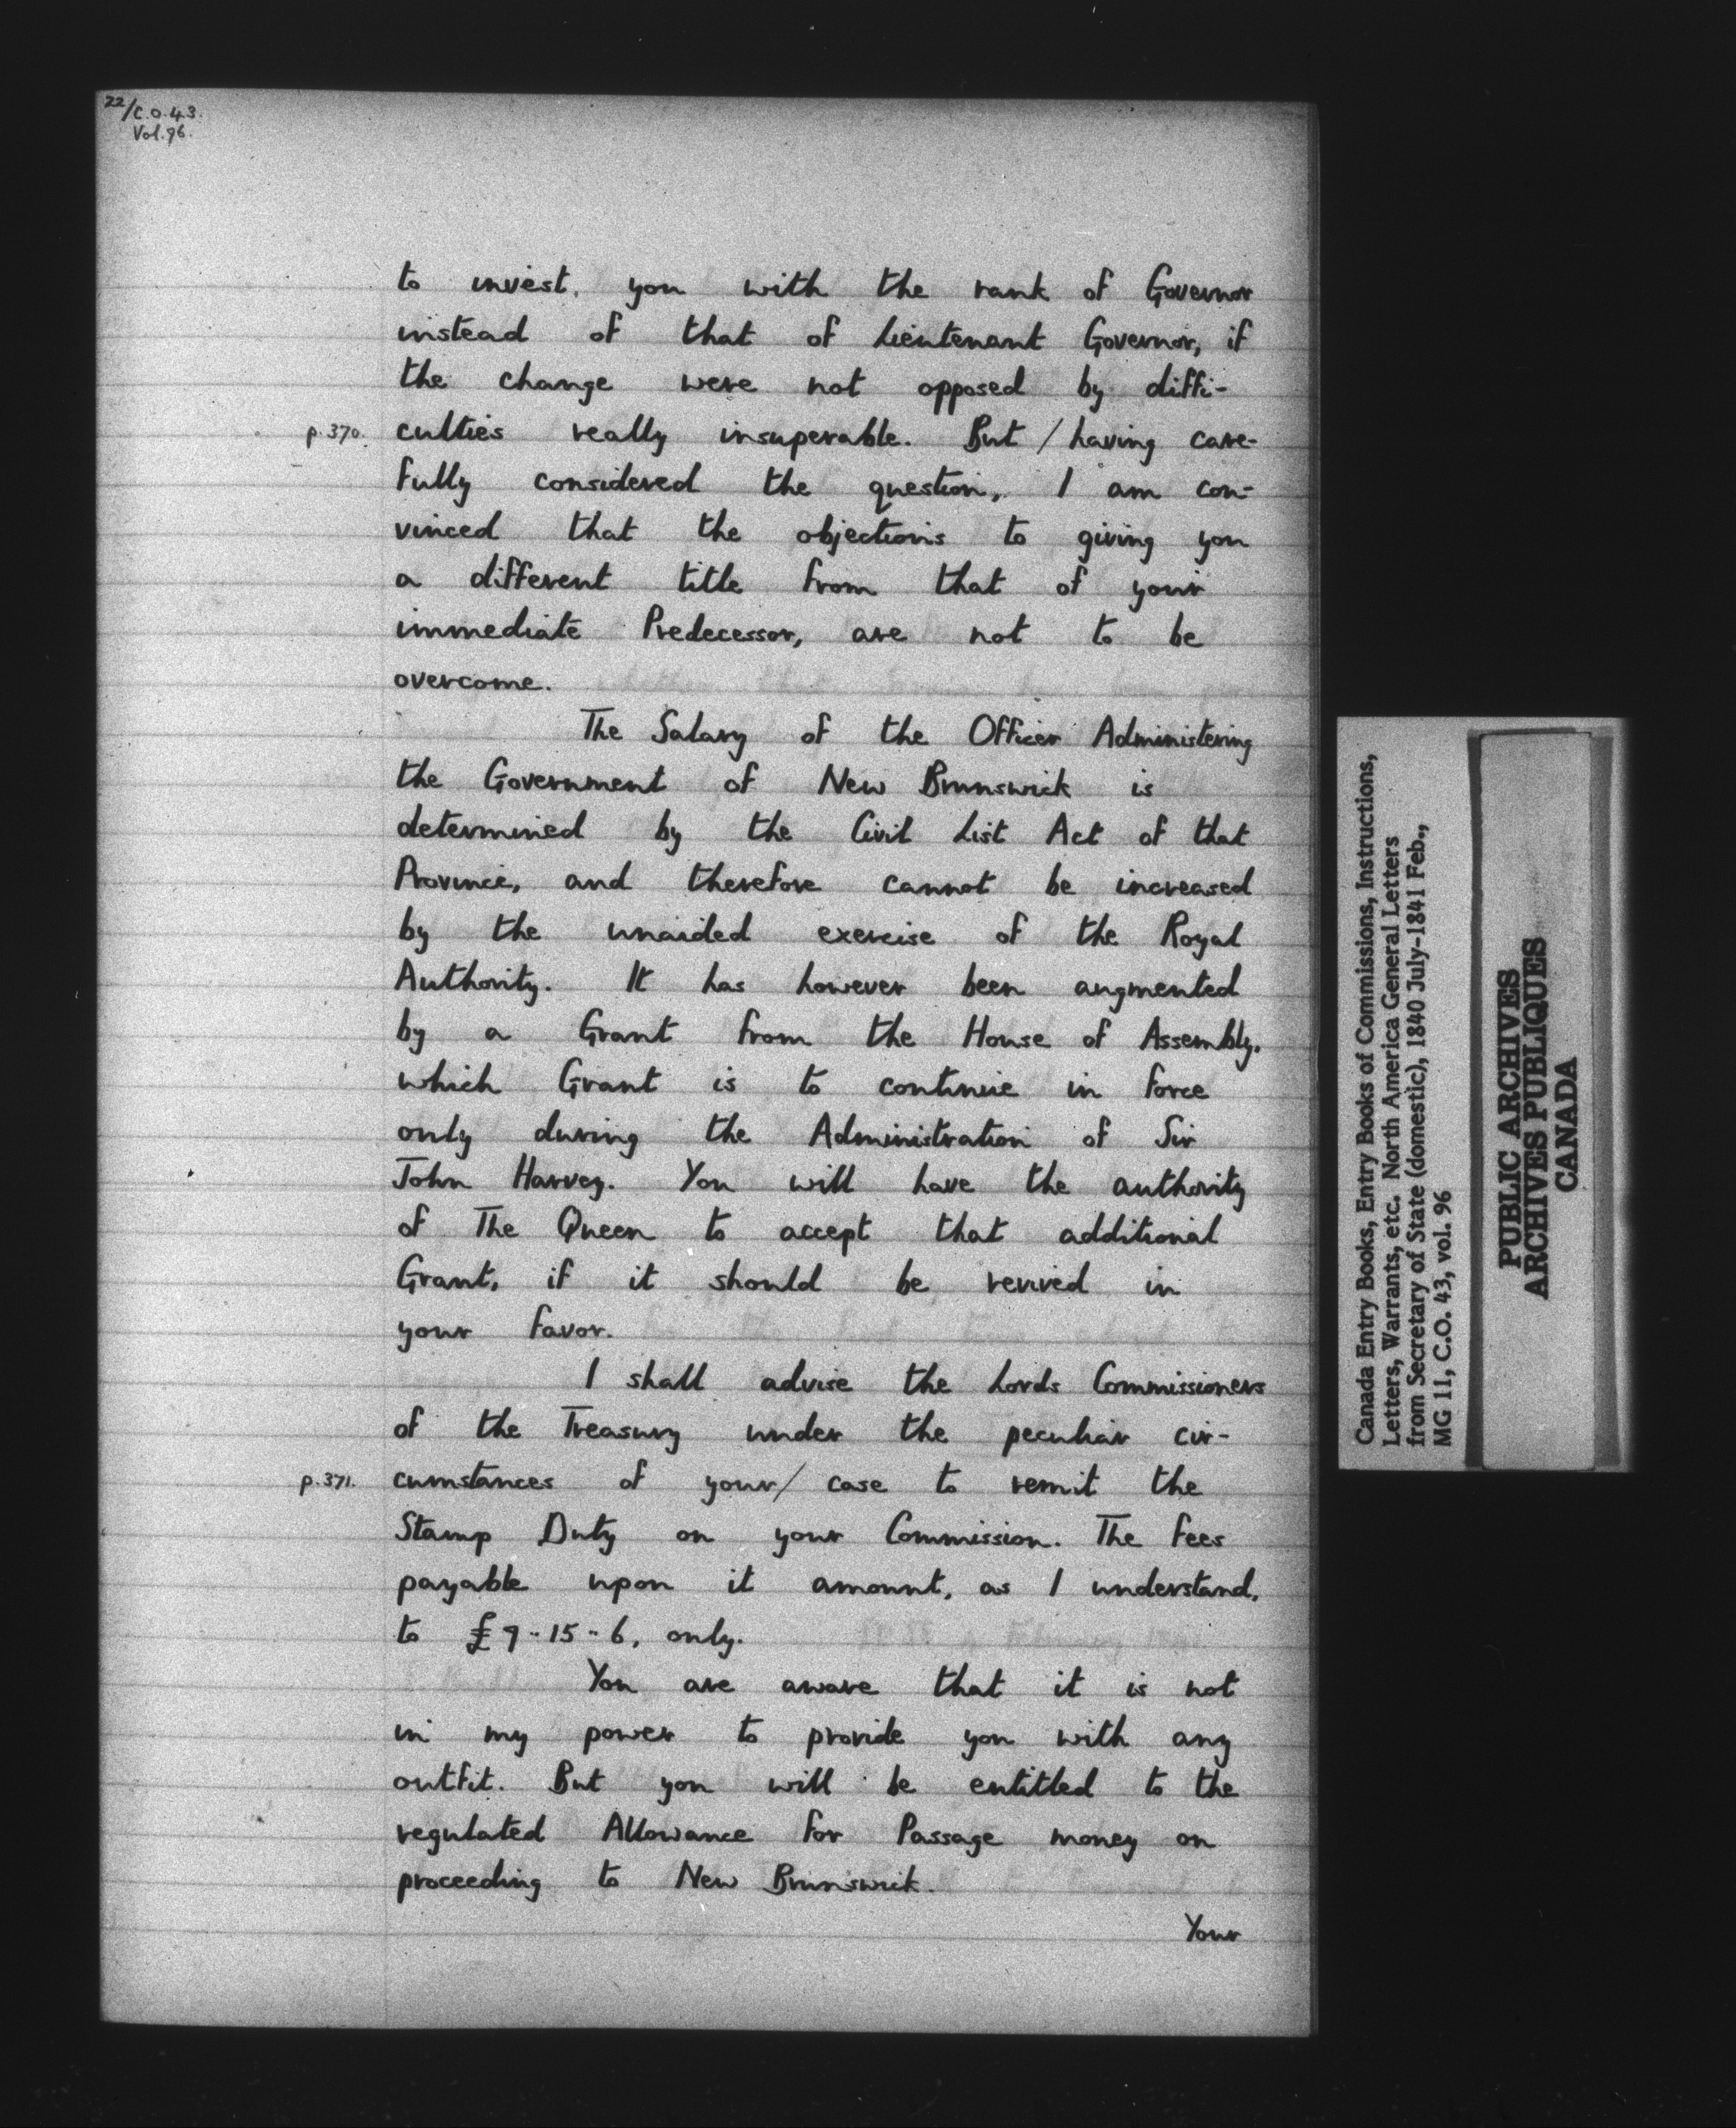 22/C.O.43.
Vol.96.
to invest. you with the rank of Governor
instead of that of Lieutenant Governor, if
the change were not opposed by diffi-
p.370. culties really insuperable. But / having care-
fully considered the question, I am con-
vinced that the objections to giving you
a different title from that of your
immediate Predecessor, are not to be
overcome.
The Salary of the Officer Administering
the Government of New Brunswick is
determined by the Civil List Act of that
Province, and therefore cannot be increased
by the unaided exercise of the Royal
Authority. It has however been augmented
by a Grant from the House of Assembly,
which Grant is to continue in force
only during the Administration of Sir
John Harvey. You will have the authority
of The Queen to accept that additional
Grant, if it should be revived in
your favor.
I shall advise the Lords Commissioners
of the Treasury under the peculiar cir-
p.371. cumstances of your/ case to remit the
Stamp Duty on your Commission. The Fees
payable upon it amount, as I understand,
to £9..15..6, only.
You are aware that it is not
in my power to provide you with any
outfit. But you will be entitled to the
regulated Allowance for Passage money on
proceeding to New Brunswick.
Your
Canada Entry Books, Entry Books of Commissions, Instructions,
Letters, Warrants, etc. North America General Letters
from Secretary of State (domestic), 1840 July-1841 Feb.,
MG 11, C.O. 43, vol. 96
PUBLIC ARCHIVES
ARCHIVES PUBLIQUES
CANADA